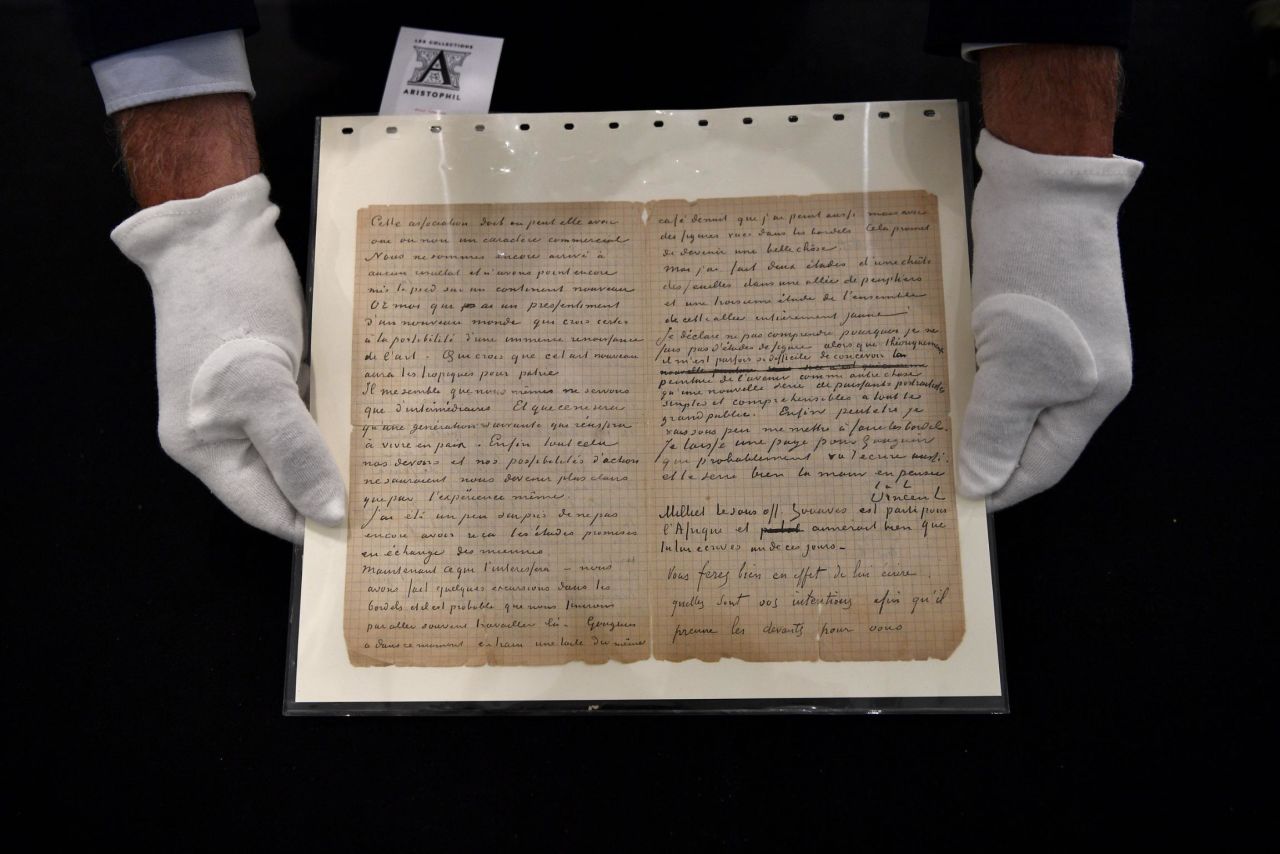 LES COLLECTIONS
A
ARISTOPHIL
Cette association doit ou peut elle avoir
oui ou non un caractère commercial
Nous ne sommes encore arrivé à
aucun résultat et n'avons point encore
mis le pied sur un continent nouveau
Or moi que ai un pressentiment
d'un nouveau monde qui crois certes
à la possibilité d'une immense renaissance
de l'art. Qui crois que cet art nouveau
aura les tropiques pour patrie
Il me semble que nous mêmes ne servons
que d'intermédiaires. Et que ce ne sera
qu'une génération suivante qui réussira
à vivre en paix. Enfin tout cela
nos devoirs et nos possibilités d'action
ne sauraient nous devenir plus clairs
que par l'expérience même.
J'ai été un peu surpris de ne pas
encore avoir reçu les études promises
en échange des miennes
Maintenant ce que t'interessera – nous
avons fait quelques excursions dans les
bordels et il est probable que nous finirons
par aller souvent travailler là. Gauguin
a dans ce moment en train une toile du même
café de nuit que j'ai peint aussi mais avec
des figures vues dans les bordels. Cela promet
de devenir une belle chôse.
moi j'ai fait deux études d'une chûte
des feuilles dans une allée de peupliers
et une troisieme étude de l'ensemble
de cette allée entièrement jaune
Je déclare ne pas comprendre pourquoi je ne
fais pas d'études de figure alors que théoriquement
il m'est parfois si difficile de concevoir la
peinture de l'avenir comme autre chose
qu'une nouvelle serie de puissants portraitistes
simples et comprehensibles à tout le
grand public. Enfin peut etre je
vais sous peu me mettre à faire les bordels.
Je laisse une page pour Gauguin
qui probablement va t'ecrire aussi
et te serre bien la main en pensée
t. à t.
Vincent
Milliet le sous off. Zouaves est parti pour
l'Afrique et aimerait bien que
tu lui ecrives un de ces jours –
Vous ferez bien en effet de lui écrire
quelles sont vos intentions afin qu'il
prenne les devants pour vous